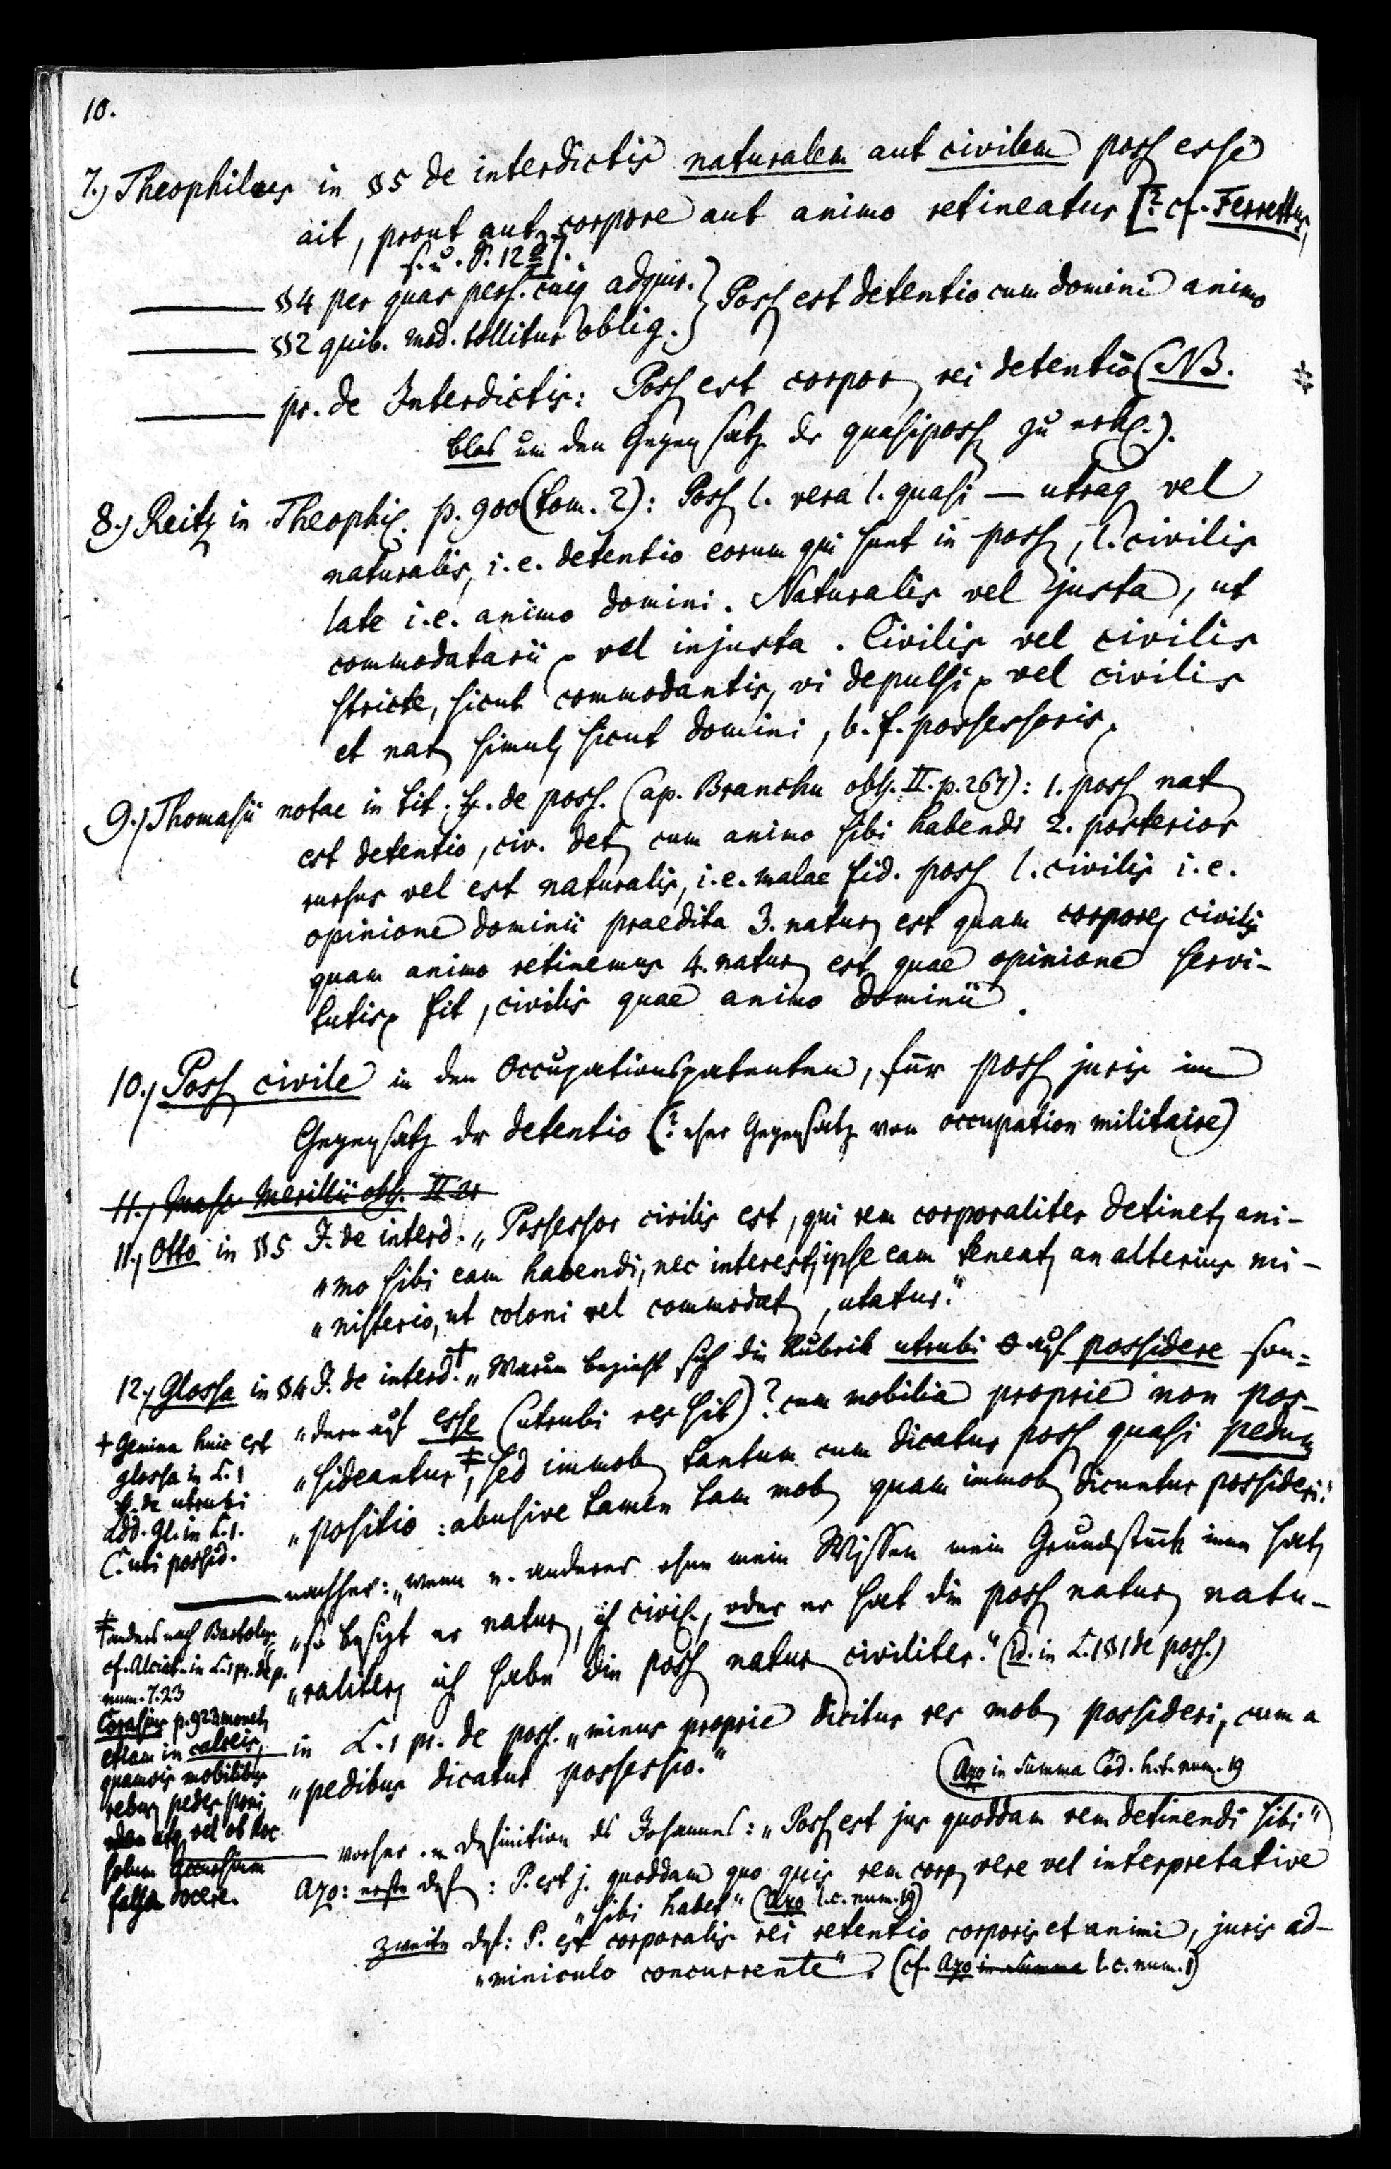 10.
7.) Theophilus in §5 de interdictis naturalem aut civilem poss esse
ait, prout aut corpore aut animo retineatur [? cf. Ferrettus,
s. u. P. 12 ].
——— §4 per quas pers. cuiq adquir. } Poss est detentio cum domini animo
——— §2 quib. mod. tollitur oblig. }
——— pr. de Interdictis: Poss est corpor rei detentio (NB.
blos um den Gegensatz der quasiposs zu erkl.).
8.) Reitz in Theophil. p. 900 (tom. 2): Poss l. vera l. quasi — utraq vel
naturalis, i.e. detentio eorum qui sunt in poss, l. civilis
late i.e. animo domini. Naturalis vel justa, ut
commodatarii vel injusta. Civilis vel civilis
stricte, sicut commodantis, vi depulsi vel civilis
et nat simul sicut domini, b. f. possessoris.
9.) Thomasii notae in tit. ff. de poss. (ap. Branchu obs. II. p. 267): 1. poss nat
est detentio, civ. det cum animo sibi habendi 2. posterior
rursus vel est naturalis, i.e. malae fid. poss l. civilis i.e.
opinione dominii praedita 3. natur est quam corpore civilis
quam animo retinemus 4. natur est quae opinione servi-
tutis fit, civilis quae animo dominii.
10.) Poss civile in den Occupationspatenten, für poss juris im
Gegensatz der detentio (? eher Gegensatz von occupation militaire)
11.) Merillii obs. II
11.) Otto in §5 J. de interd. „Possessor civilis est, qui rem corporaliter detinet ani-
„mo sibi eam habendi, nec interest, ipse eam teneat, an alterius mi-
„nisterio, ut coloni vel commodat, utatur."
12.) Glossa in §4 J. de interd.† „Warum bezieht sich die Rubrik utrubi auf possidere son-
„dern auf esse (utrubi res sit)? cum mobilia proprie non pos-
„sideantur‡, sed immob tantum cum dicatur poss quasi pedum
„positio: abusive tamen tam mob quam immob dicuntur possideri."
nachher: „wenn e. anderer ohne mein Wissen mein Grundstück inne hat,
„so besizt er natur, ich civil., oder er hat die poss natur natu-
„raliter, ich habe die poss natur civiliter." (id. in L.1 §1 de poss.)
in L.1 pr. de poss. „minus proprie dicitur res mob possideri, cum a
„pedibus dicatur possessio."
(Azo in Summa Cod. h.t. num. 19
vorher e. Definition des Johannes: „Poss est jus quoddam rem detinendi sibi"
Azo: erste Def: P. est j. quoddam quo quis rem corp vere vel interpretative
„sibi habet" (Azo l.c. num. 19)
zweite Def: P. est corporalis rei retentio corporis et animi, juris ad-
„miniculo concurrente". (cf. Azo in Summa l.c. num. 1)
† Gemina huic est
glossa in L.1
ff. de utrubi
Add. Gl. in L.1.
C. uti possid.
‡ anders nach Bartolus
cf. Alciat. in L.1 pr. de p.
num. 7. 23
Corasius p. 923 monet
etiam in calceis,
quamvis mobilibus
rebus, pedes poni
vel ob hoc
solum Accursium
falsa docere.